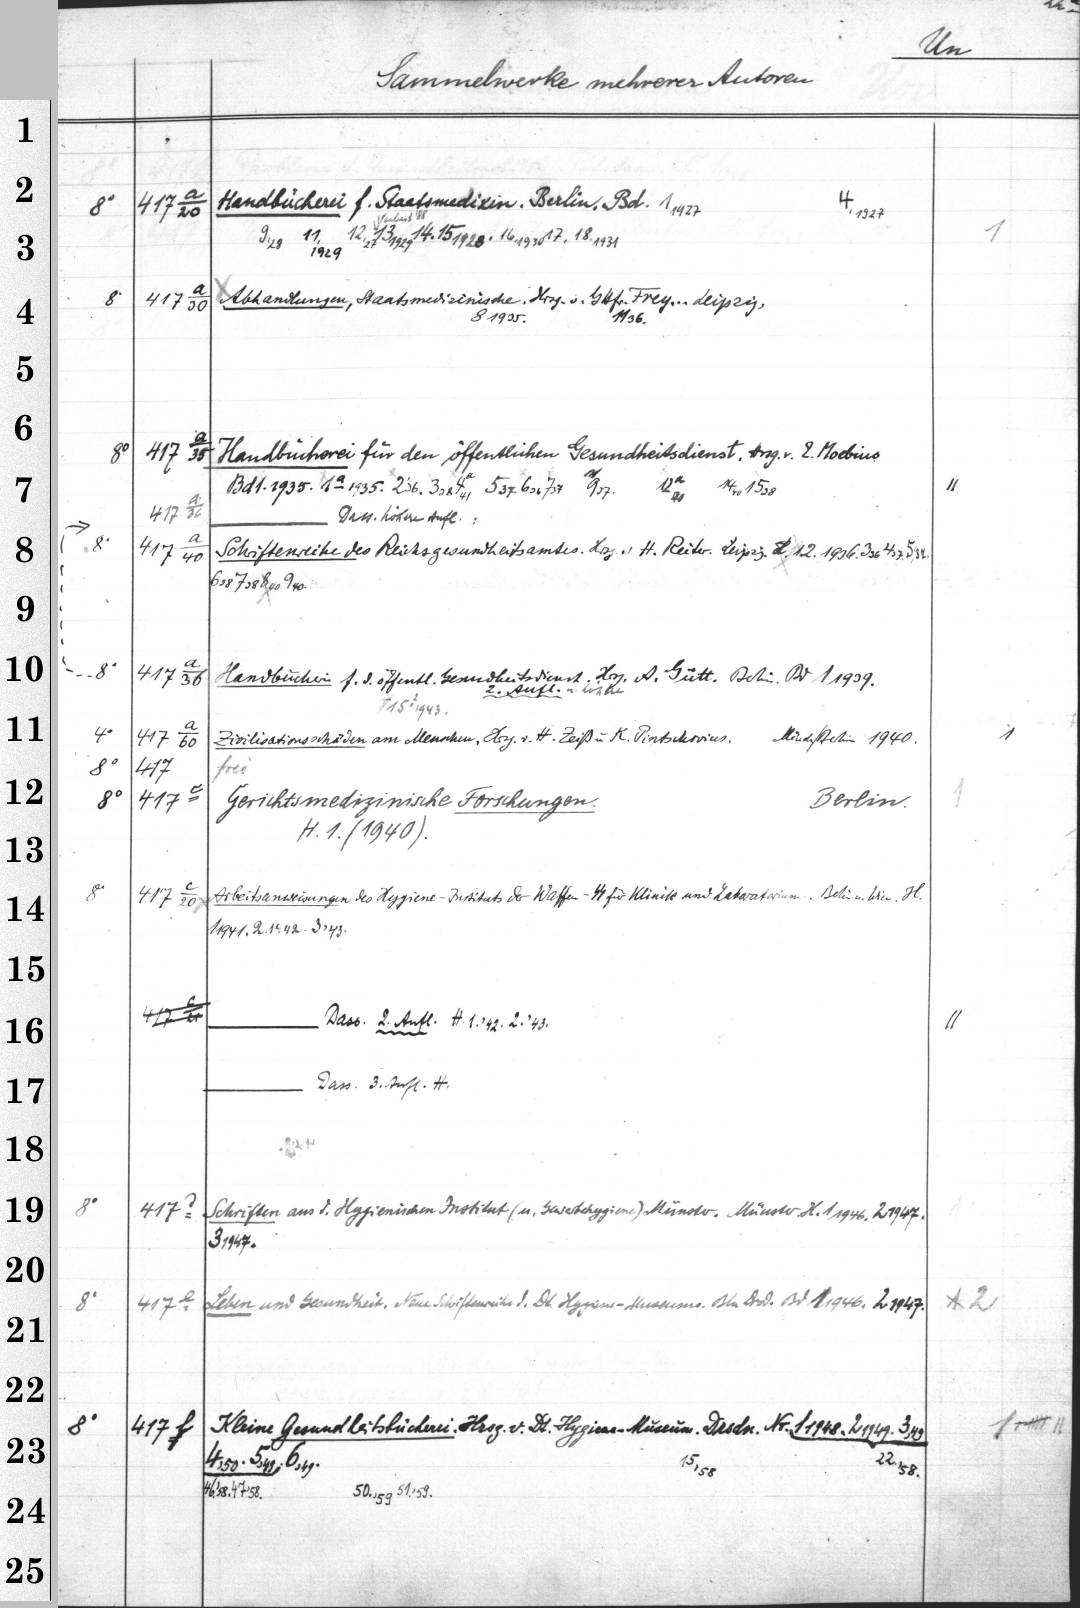 Un
Sammelwerke mehrerer Autoren
1
2
8° 417 a/20 Handbücherei f. Staatsmedizin. Berlin. Bd. 1, 1927 4, 1927
3
9,28 11, 1929 12,27 13, 1929 14. 15 1928. 16 1930 17, 18, 1931 1
4
8° 417 a/30 Abhandlungen, Staatsmedizinische. Hrsg. v. Gttfr. Frey... Leipzig.
8 1935. 11 36.
5
6
8° 417 a/35 Handbücherei für den öffentlichen Gesundheitsdienst. Hrsg. v. E. Moebius
7
Bd 1. 1935. 1a 1935. 2 36. 3,38 4a 41 5 37. 6,36 7 37 9 37. 12a 40 14,40 15 38 "
417 a/36 Dass. höhere Aufl.:
8
8° 417 a/40 Schriftenreihe des Reichsgesundheitsamtes. Hrsg. v. H. Reiter. Leipzig. 1.2. 1936. 3,36 4,37. 5,38.
6,38 7,38 8,40. 9,40.
9
10
8° 417 a/36 Handbücherei f. d. öffentl. Gesundheitsdienst. Hrsg. A. Gütt. Berlin. Bd 1 1939.
2. Aufl. u. höhere
15 1943.
11
4° 417 a/60 Zivilisationsschäden am Menschen. Hrsg. v. H. Zeiß u. K. Pintschovius. München/Berlin 1940. 1
8° 417 frei
12
8° 417 c Gerichtsmedizinische Forschungen. Berlin. 1
H. 1. (1940).
13
14
8° 417 c/20 Arbeitsanweisungen des Hygiene-Instituts der Waffen-SS für Klinik und Laboratorium. Berlin u. Wien. H.
1 1941. 2. 1942. 3,'43.
15
16
417 c/21 Dass. 2. Aufl. H. 1.'42. 2.'43. "
17
Dass. 3. Aufl. H.
18
19
8° 417 Schriften aus d. Hygienischen Institut (u. Gewerbehygiene) Münster. Münster H. 1 1946. 2 1947.
3 1947.
20
8° 417 e Leben und Gesundheit. Neue Schriftenreihe d. Dt. Hygiene-Museums. Bln Drsd. Bd 1 1946. 2 1947. 2
21
22
8° 417 f Kleine Gesundheitsbücherei. Hrsg. v. Dt. Hygiene-Museum. Dresdn. Nr. 1 1948. 2 1949. 3,49
23
4,50. 5,49. 6,49. 15,58 22.'58.
46,'58. 47'58. 50.,59 51.'59.
24
25